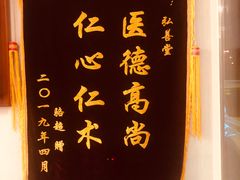 弘善堂
医德高尚
仁心仁术
骆越 赠
二〇一九年四月